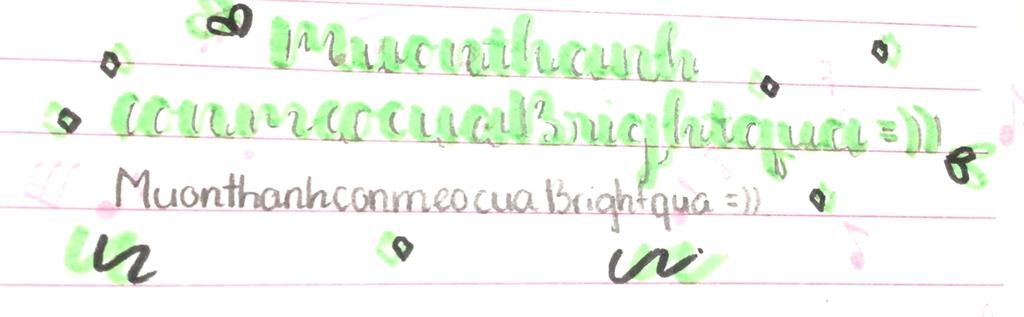 Muonthanh
conmeocuaBrightqua =)))
MuonthanhconmeocuaBrightqua =))